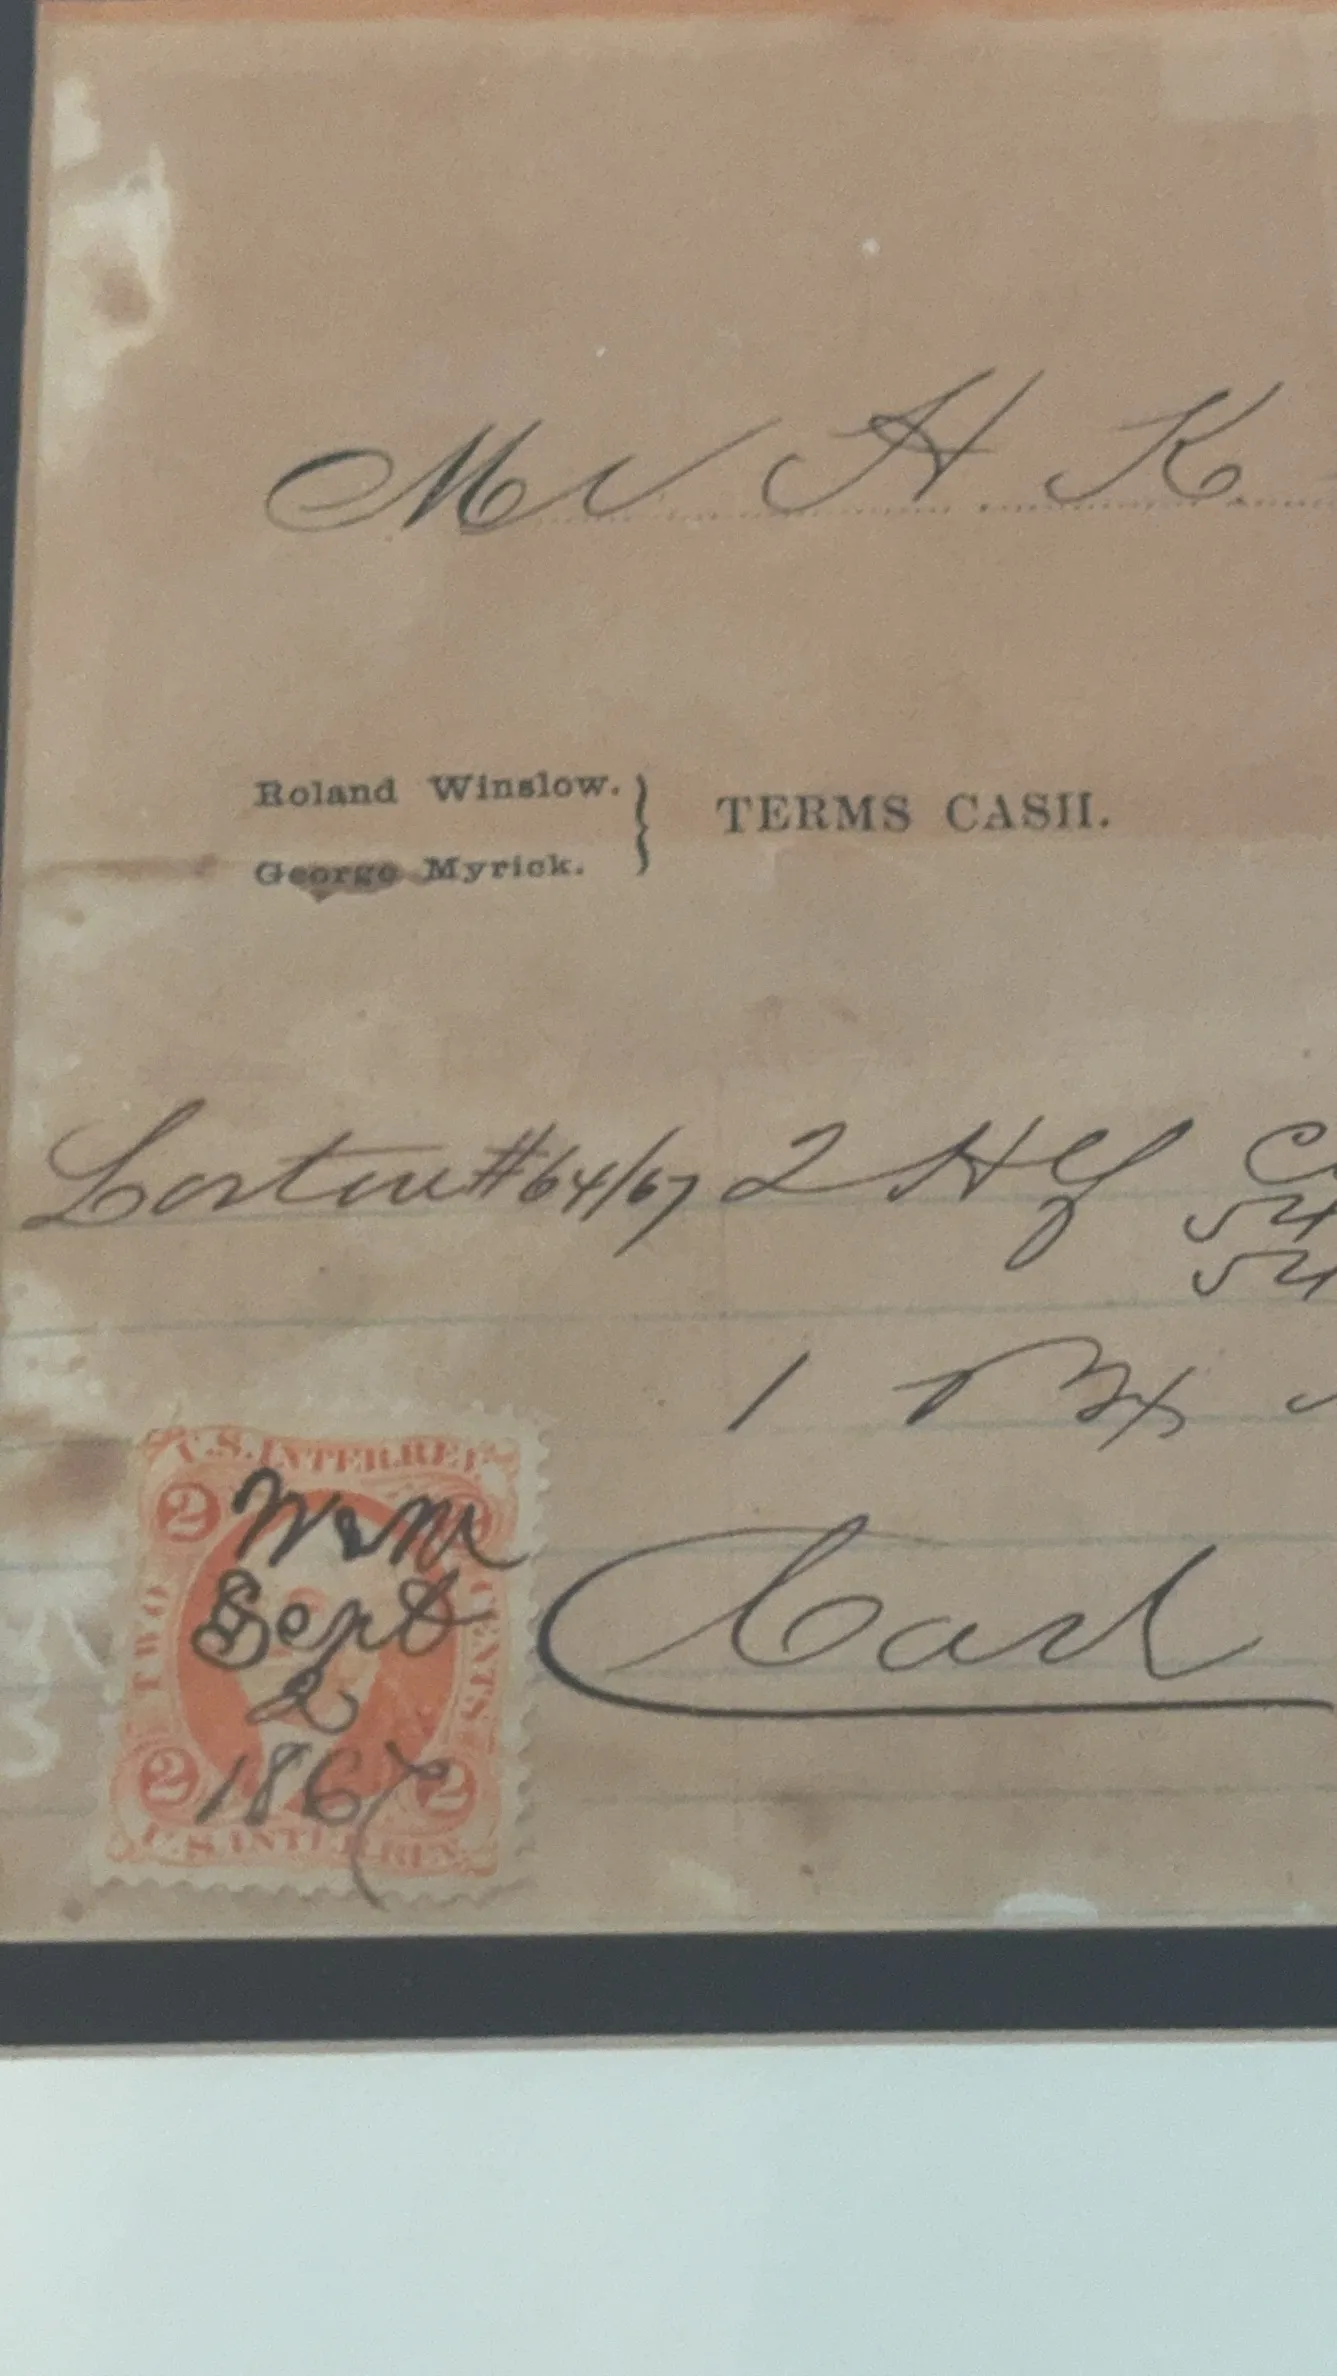 Mr H K
Roland Winslow. } TERMS CASH.
George Myrick.
#64/67 2 Hf
54
54
1 Bx
Cash
U.S. INTER. REV.
2
W & M
Sept
2
1867
TWO
CENTS
2 2
U.S. INTER. REV.